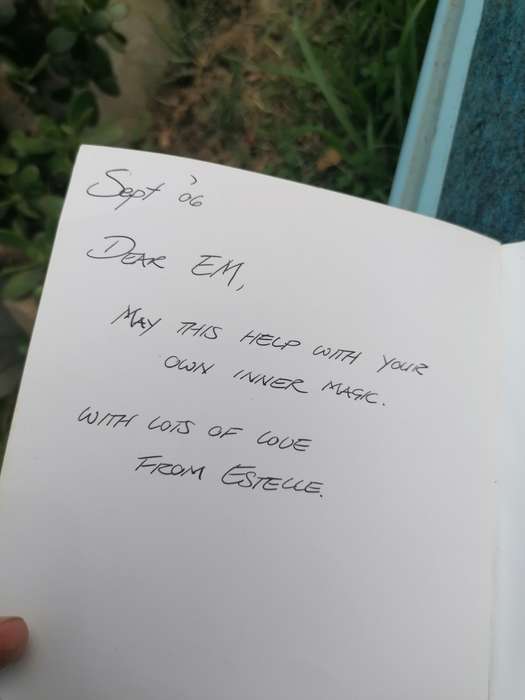 Sept '06
DEAR EM,
MAY THIS HELP WITH YOUR
OWN INNER MAGIC.
WITH LOTS OF LOVE
FROM ESTELLE.